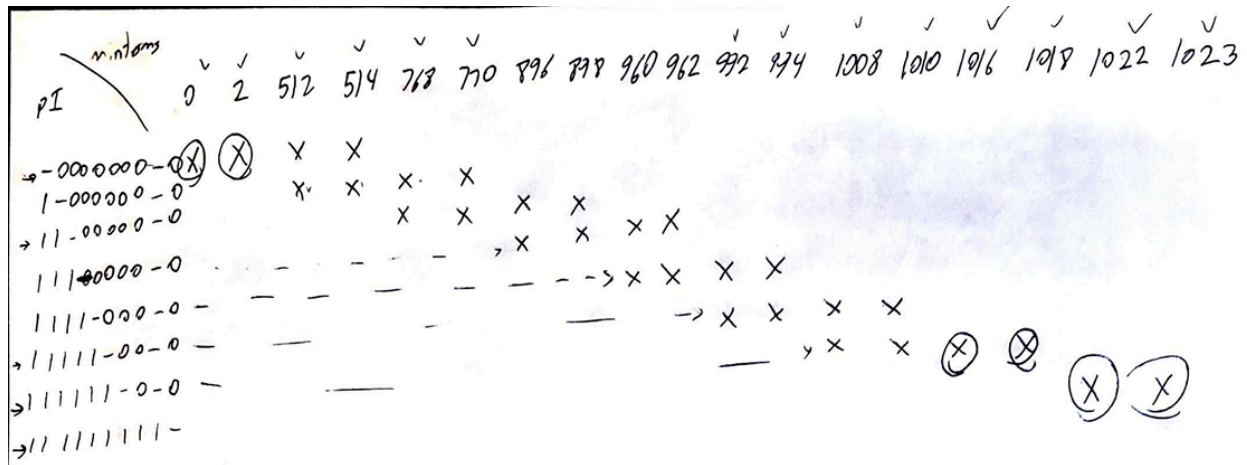 mintoms
PI
0 2 512 514 768 770 896 898 960 962 992 994 1008 1010 1016 1018 1022 1023
-0000000-0 X X X X
1-000000-0 X X X X
11-00000-0 X X X X
111-0000-0 X X X X
1111-000-0 X X X X
11111-00-0 X X X X
111111-0-0 X X X X
111111111- X X